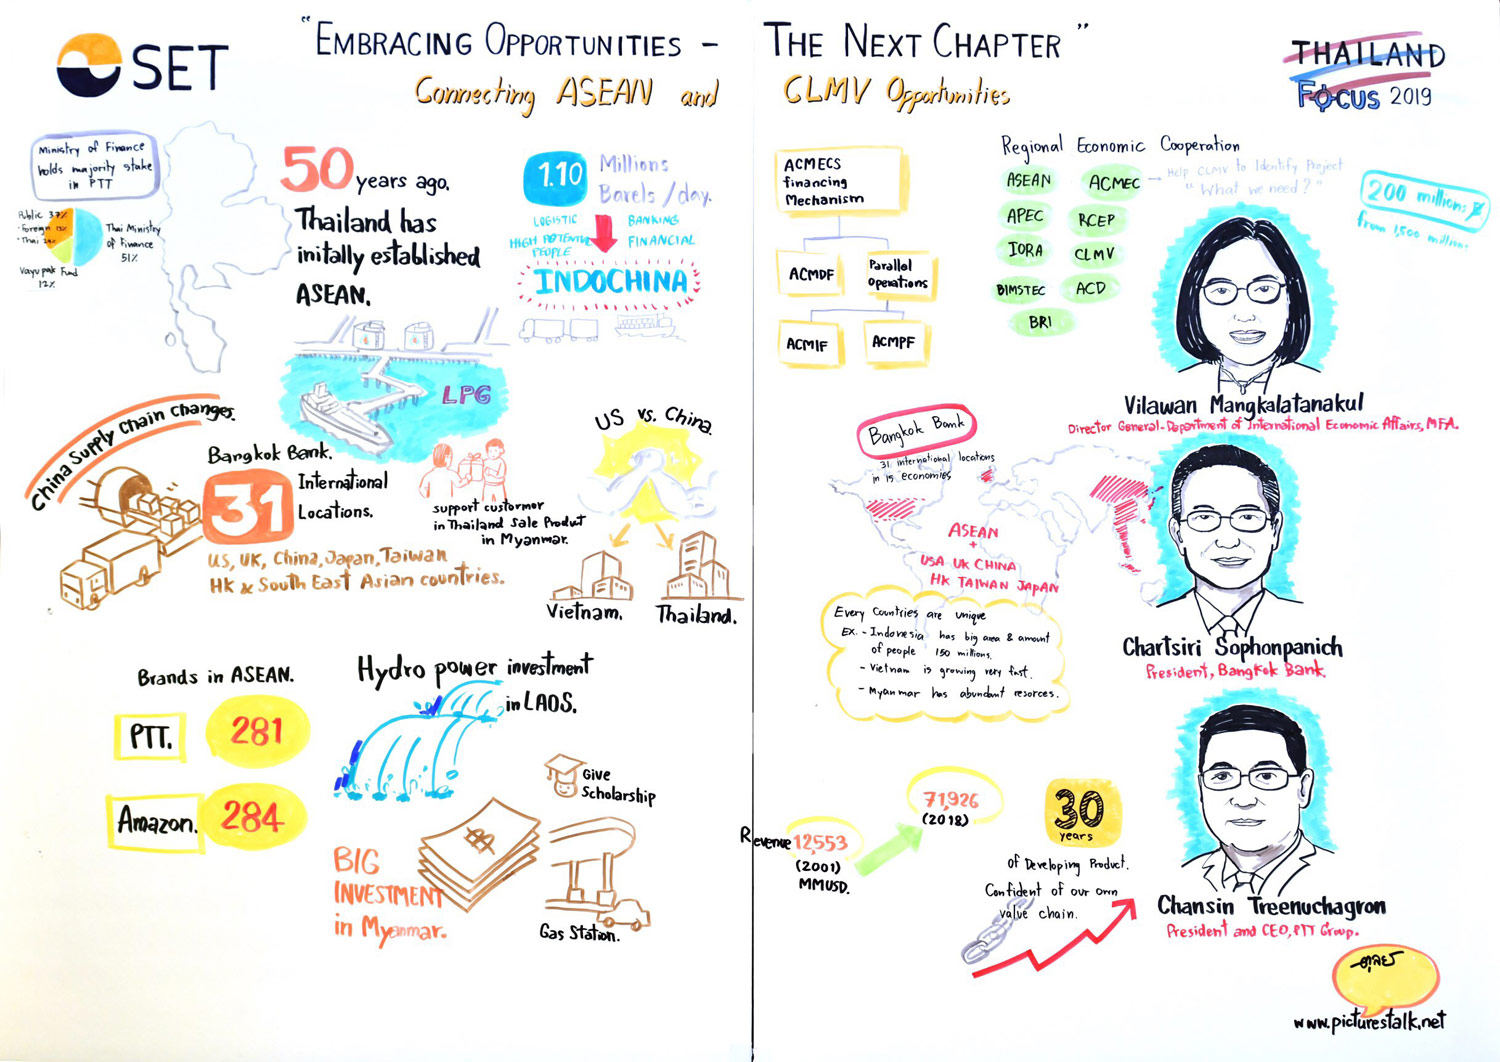 SET
"EMBRACING OPPORTUNITIES - THE NEXT CHAPTER"
Connecting ASEAN and CLMV Opportunities
THAILAND
FOCUS 2019
Ministry of Finance
holds majority stake
in PTT
Public 37%
Foreign 13%
Thai 24%
Thai Ministry
of Finance
51%
Vayupak Fund
12%
50 years ago,
Thailand has
initally established
ASEAN.
1.10 Millions
Barels/day.
LOGISTIC
HIGH POTENTIAL
PEOPLE
BANKING
FINANCIAL
INDOCHINA
LPG
China Supply Chain Changes.
Bangkok Bank.
31 International
Locations.
US, UK, China, Japan, Taiwan
HK & South East Asian countries.
support custormor
in Thailand Sale Product
in Myanmar.
US vs. China.
Vietnam.
Thailand.
Brands in ASEAN.
PTT. 281
Amazon. 284
Hydro power investment
in LAOS.
Give
Scholarship
BIG
INVESTMENT
in Myanmar.
Gas Station.
ACMECS
financing
Mechanism
ACMDF
Parallel
Operations
ACMIF
ACMPF
Regional Economic Cooperation
ASEAN
ACMEC
Help CLMV to Identify Project
"What we need?"
APEC
RCEP
IORA
CLMV
BIMSTEC
ACD
BRI
200 millions
from 1,500 millions
Vilawan Mangkalatanakul
Director General-Department of International Economic Affairs, MFA.
Bangkok Bank
31 international locations
in 15 economies
ASEAN
+
USA UK CHINA
HK TAIWAN JAPAN
Every Countries are unique
EX. - Indonesia has big area & amount
of people 150 millions.
- Vietnam is growing very fast.
- Myanmar has abundant resorces.
Chartsiri Sophonpanich
President, Bangkok Bank.
Revenue 12,553
(2001)
MMUSD.
71,926
(2018)
30
years
of Developing Product.
Confident of our own
value chain.
Chansin Treenuchagron
President and CEO, PTT Group.
www.picturestalk.net